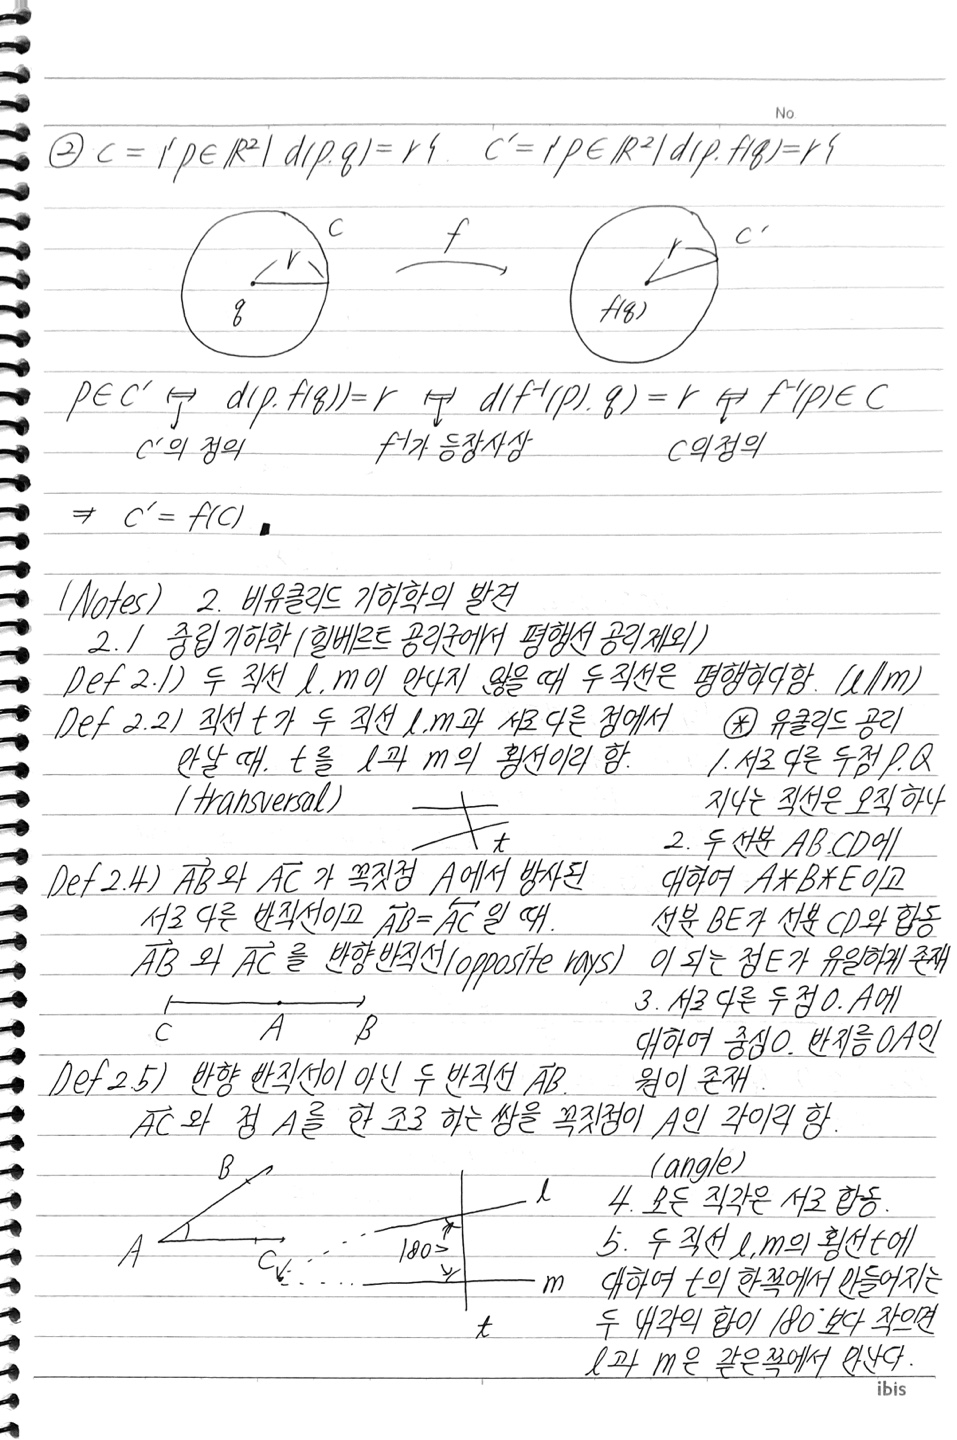 No
② C = {p∈ℝ²| d(p.q)=r}. C′={p∈ℝ²|d(p.f(q))=r}
C f C′
r r
q f(q)
p∈C′ ↔ d(p.f(q))=r ↔ d(f⁻¹(p).q)=r ↔ f⁻¹(p)∈C
C′의 정의 f⁻¹가 등장사상 C의 정의
⇒ C′ = f(C) ∎
(Notes) 2. 비유클리드 기하학의 발견
2.1 중립기하학(힐베르트 공리군에서 평행선 공리제외)
Def 2.1) 두 직선 l.m이 만나지 않을 때 두 직선은 평행하다함. (l//m)
Def 2.2) 직선 t가 두 직선 l.m과 서로 다른 점에서
만날 때. t를 l과 m의 횡선이라 함.
(transversal)
t
Def 2.4) AB와 AC가 꼭짓점 A에서 방사된
서로 다른 반직선이고 AB=AC일 때.
AB와 AC를 반향반직선(opposite rays)
C A B
Def 2.5) 반향 반직선이 아닌 두 반직선 AB.
AC와 점 A를 한 조로 하는 쌍을 꼭짓점이 A인 각이라 함.
(angle)
B
A C
l
180>
m
t
⊛ 유클리드 공리
1. 서로 다른 두점 P.Q
지나는 직선은 오직 하나
2. 두 선분 AB.CD에
대하여 A*B*E이고
선분 BE가 선분 CD와 합동
이 되는 점E가 유일하게 존재
3. 서로 다른 두 점 O.A에
대하여 중심O. 반지름OA인
원이 존재.
4. 모든 직각은 서로 합동.
5. 두 직선 l.m의 횡선 t에
대하여 t의 한쪽에서 만들어지는
두 내각의 합이 180°보다 작으면
l과 m은 같은쪽에서 만난다.
ibis